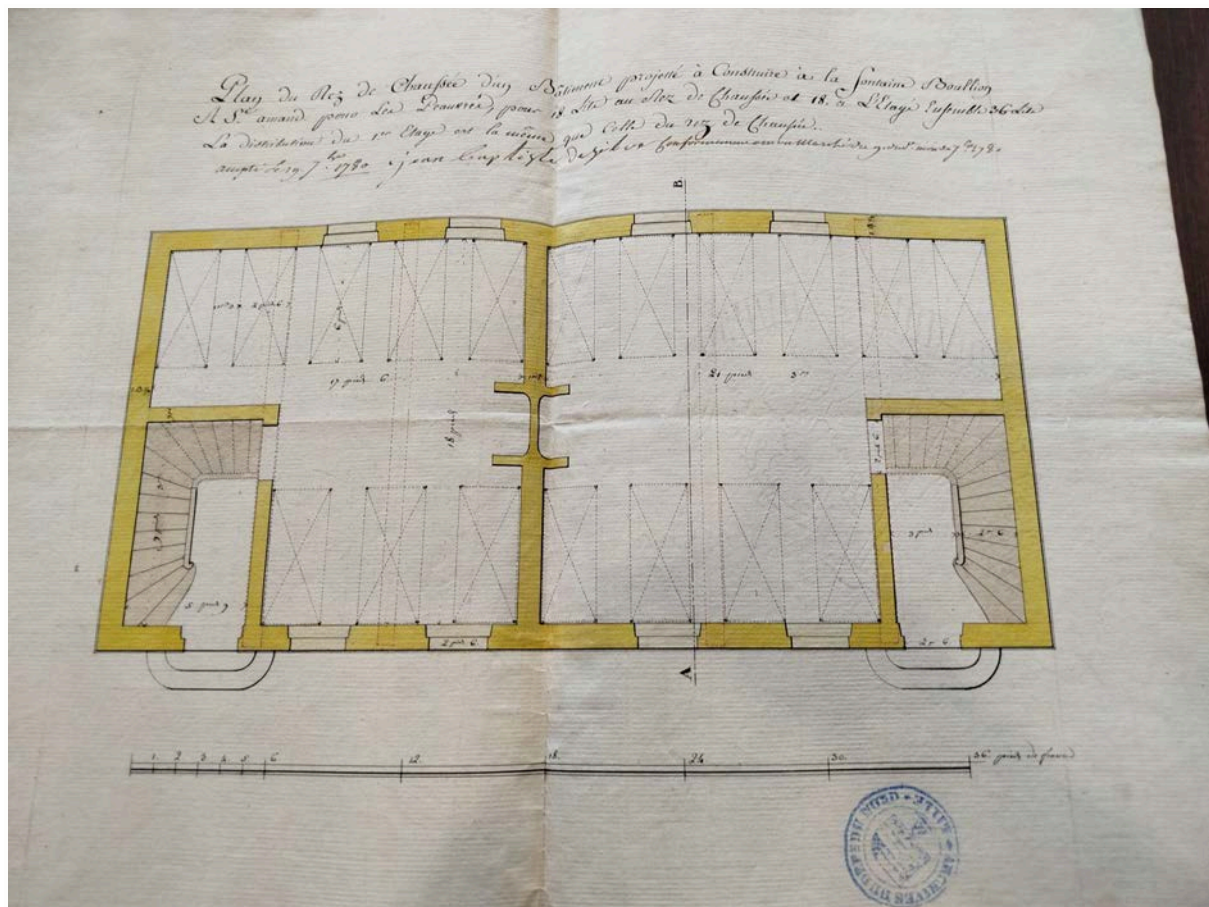 Plan du Rez de Chaussée d'un Bâtiment projetté à Construire à la fontaine Bouillon
A St. amand pour Les Pauvres, pour 18 Lits au Rez de Chaussée et 18. à L'Etage Ensemble 36 Lits
La distribution du 1er Etage est la même que Celle du rez de Chaussée.
accepté le 19 7bre 1780 jean baptiste Conformement au Marché du 9. 7bre 1780
B
2 pieds 6
6 pieds
17 pieds 6.
21 pieds 3
18 pieds
2 pieds 6
9 pieds
3 pieds
2 p. 6
5 pieds 9
2 pieds 6.
2 p. 6
A
1. 2 3 4. 5. 6 12. 18. 24 30. 36 pieds de france
ARCHIVES DU DEPT DU NORD * LILLE *